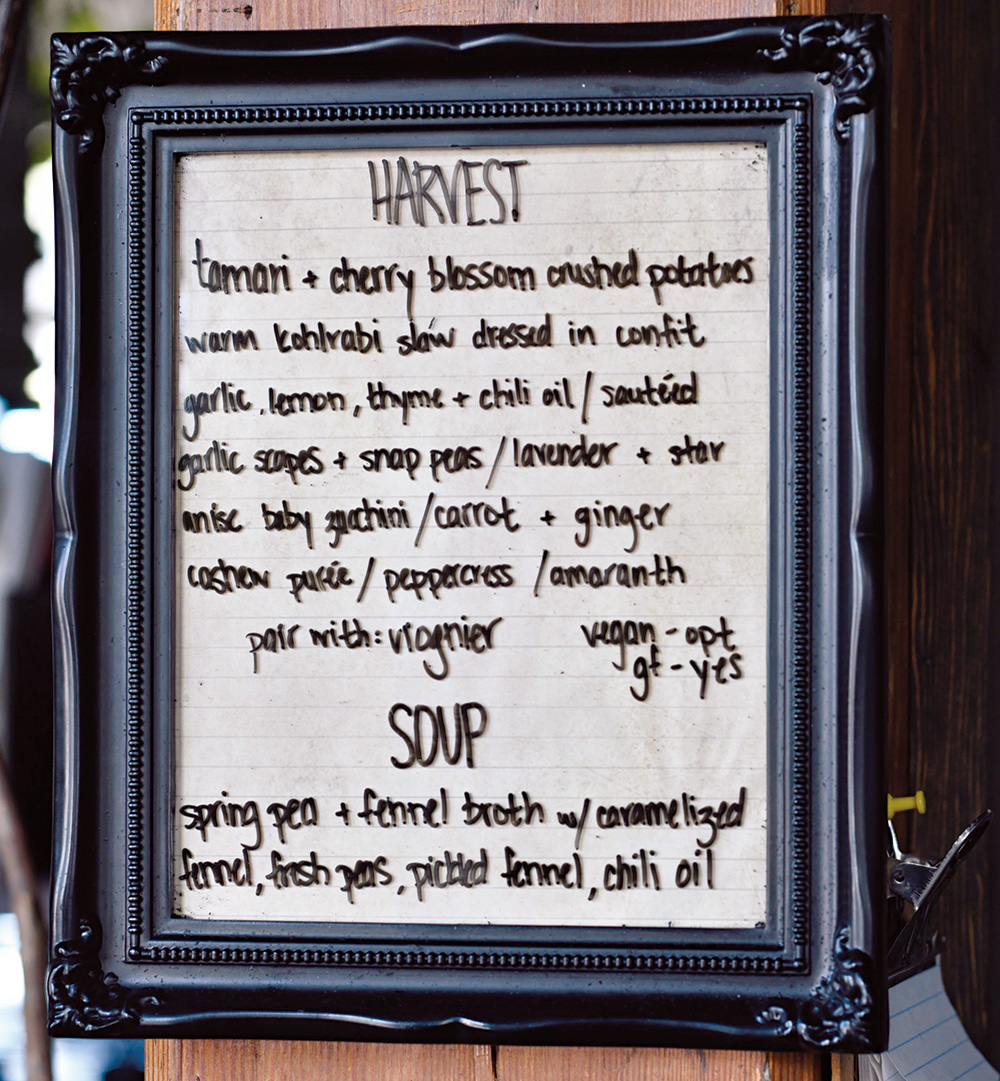 HARVEST
tamari + cherry blossom crushed potatoes
warm kohlrabi slaw dressed in confit
garlic, lemon, thyme + chili oil / sautéed
garlic scapes + snap peas / lavender + star
anise baby zucchini / carrot + ginger
cashew purée / peppercress / amaranth
pair with: viognier vegan - opt
gf - yes
SOUP
spring pea + fennel broth w/ caramelized
fennel, fresh peas, pickled fennel, chili oil